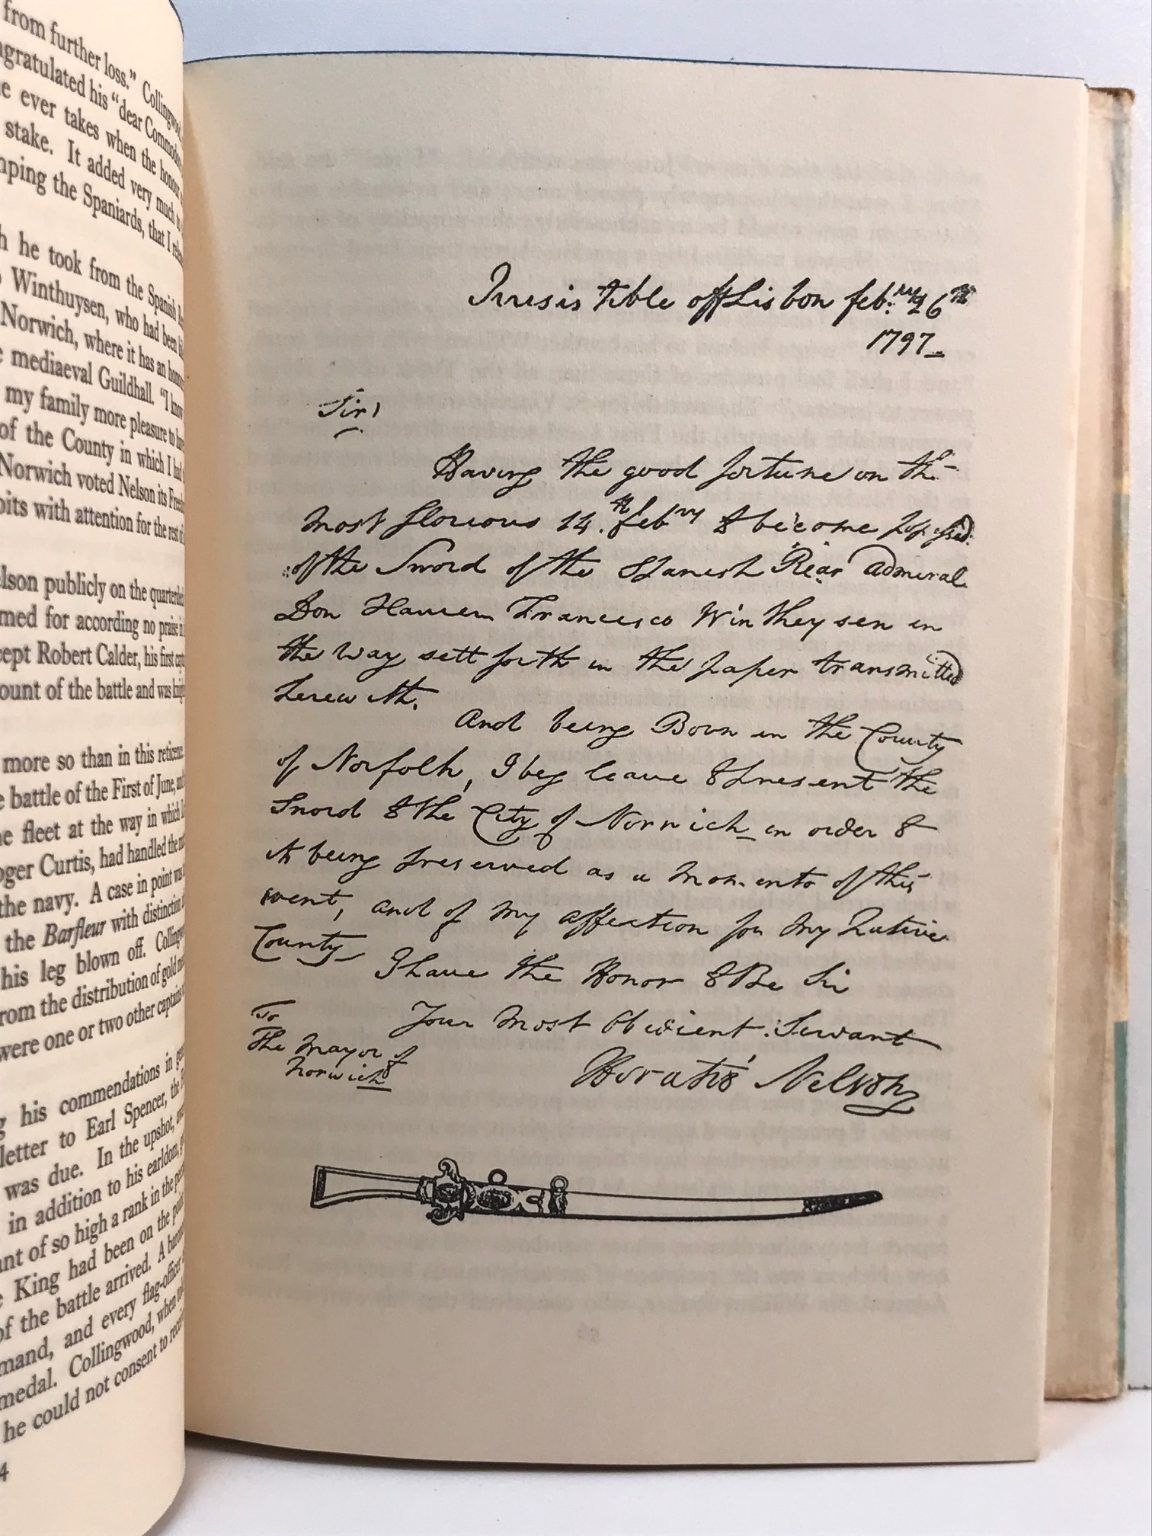 from further loss." Collingwood,
ngratulated his "dear Commodore
e ever takes when the honour
stake. It added very much
mping the Spaniards, that I
h he took from the Spanish
Winthuysen, who had been
Norwich, where it has an
e mediaeval Guildhall. "I know
my family more pleasure to
of the County in which I had
Norwich voted Nelson its
bits with attention for the rest
elson publicly on the
med for according no praise
cept Robert Calder, his first
ount of the battle and was
more so than in this reticence.
e battle of the First of June,
he fleet at the way in which
oger Curtis, had handled the
the navy. A case in point was
the Barfleur with distinction
his leg blown off.
rom the distribution of gold
were one or two other captains
g his commendations in
letter to Earl Spencer, the
was due. In the upshot,
in addition to his earldom,
nt of so high a rank in the
King had been on the
of the battle arrived. A
mand, and every flag-officer
medal. Collingwood, when
he could not consent to
4
Irresistible off Lisbon feb:ry 26th
1797_
Sir,
Having the good fortune on the
most Glorious 14.th febry to become possessed
of the Sword of the Spanish Rear admiral
Don Francesco Wintheysen in
the way sett forth in the paper transmitted
herewith.
And being Born in the County
of Norfolk, I beg leave to present the
Sword to the City of Norwich in order to
its being preserved as a momento of this
event, and of my affection for my Native
County
I have the Honor to Be Sir
Your most Obedient Servant
Horatio Nelson
To
The Mayor of
Norwich